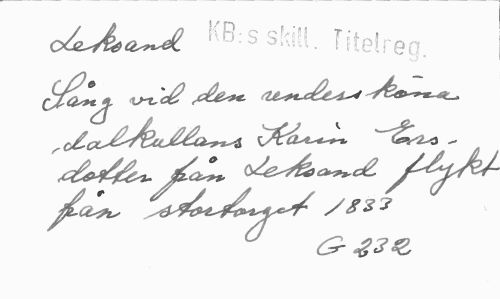 Leksand KB:s skill. Titelreg.
Sång vid den undersköna
dalkullans Karin Ers-
dotter från Leksand flykt
från stortorget 1833
G 232